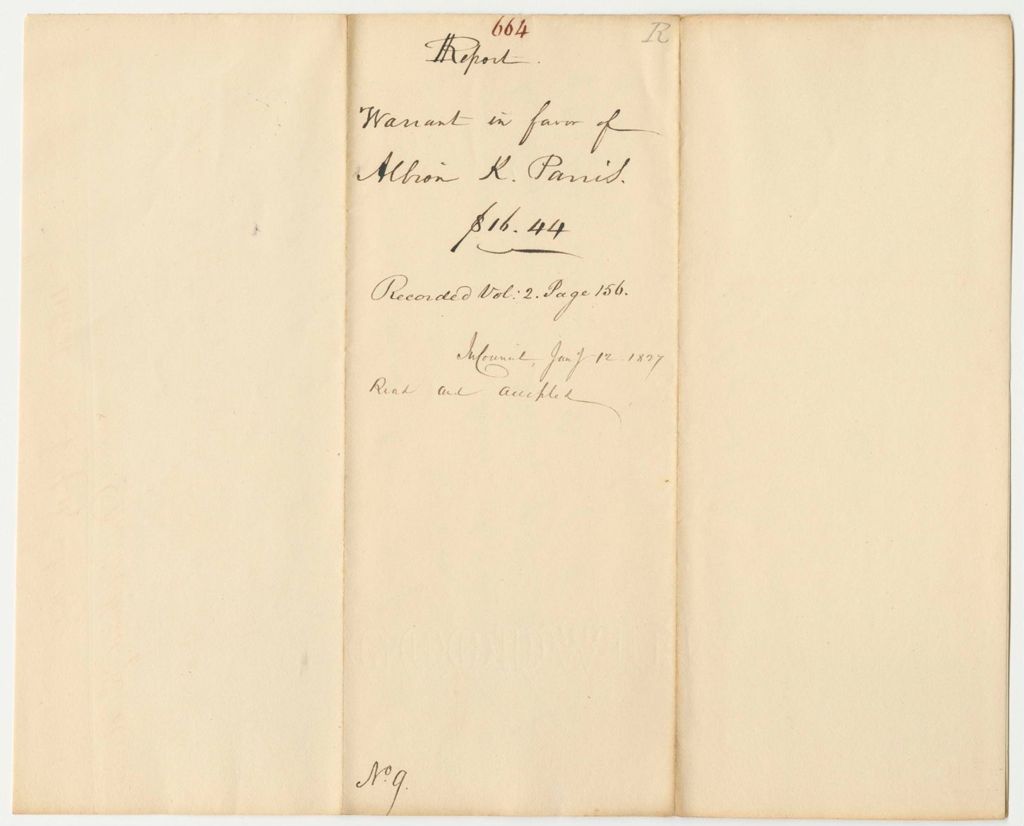 664
R
Report.
Warrant in favor of
Albion K. Parris.
$16.44
Recorded Vol: 2. Page 156.
In Council, Jany 12 1827
Read and accepted
No 9.